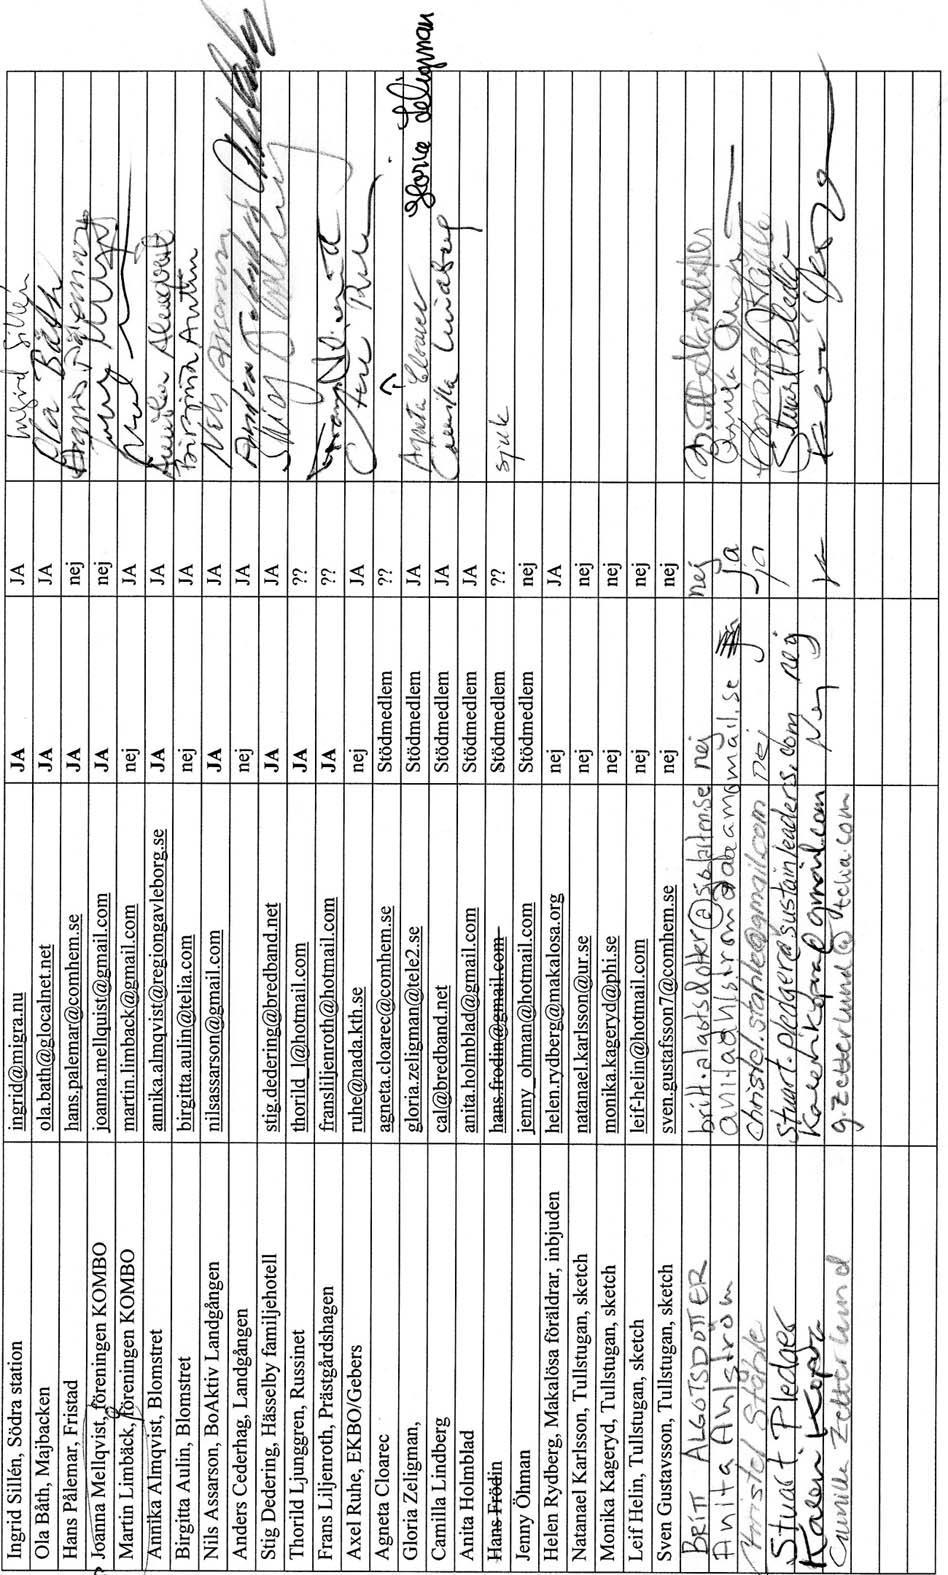 Ingrid Sillén, Södra station ingrid@migra.nu JA JA Ingrid Sillén
Ola Båth, Majbacken ola.bath@glocalnet.net JA JA Ola Båth
Hans Pålemar, Fristad hans.palemar@comhem.se JA nej
Joanna Mellqvist, föreningen KOMBO joanna.mellquist@gmail.com JA nej
Martin Limbäck, föreningen KOMBO martin.limback@gmail.com nej JA
Annika Almqvist, Blomstret annika.almqvist@regiongavleborg.se JA JA Annika Almqvist
Birgitta Aulin, Blomstret birgitta.aulin@telia.com nej JA Birgitta Aulin
Nils Assarson, BoAktiv Landgången nilsassarson@gmail.com JA JA Nils Assarson
Anders Cederhag, Landgången nej JA
Stig Dedering, Hässelby familjehotell stig.dedering@bredband.net JA JA Stig
Thorild Ljunggren, Russinet thorild_l@hotmail.com JA ??
Frans Liljenroth, Prästgårdshagen fransliljenroth@hotmail.com JA ??
Axel Ruhe, EKBO/Gebers ruhe@nada.kth.se nej JA Axel Ruhe
Agneta Cloarec agneta.cloarec@comhem.se Stödmedlem ??
Gloria Zeligman, gloria.zeligman@tele2.se Stödmedlem JA Agneta Cloarec Gloria Zeligman
Camilla Lindberg cal@bredband.net Stödmedlem JA Camilla Lindberg
Anita Holmblad anita.holmblad@gmail.com Stödmedlem JA
Hans Frödin hans.frodin@gmail.com Stödmedlem ?? sjuk
Jenny Öhman jenny_ohman@hotmail.com Stödmedlem nej
Helen Rydberg, Makalösa föräldrar, inbjuden helen.rydberg@makalosa.org nej JA
Natanael Karlsson, Tullstugan, sketch natanael.karlsson@ur.se nej nej
Monika Kageryd, Tullstugan, sketch monika.kageryd@phi.se nej nej
Leif Helin, Tullstugan, sketch leif-helin@hotmail.com nej nej
Sven Gustavsson, Tullstugan, sketch sven.gustafsson7@comhem.se nej nej
BRITT ALGOTSDOTTER nej nej
Anita Ahlström Ja
Christel Ståhle christel.stahle@gmail.com nej ja Christel Ståhle
Stuart Pledger stuart.pledger@sustainleaders.com nej Stuart Pledger
Karen Kopra karenhkopra@gmail.com Nej
Gunilla Zetterlund g.zetterlund@telia.com